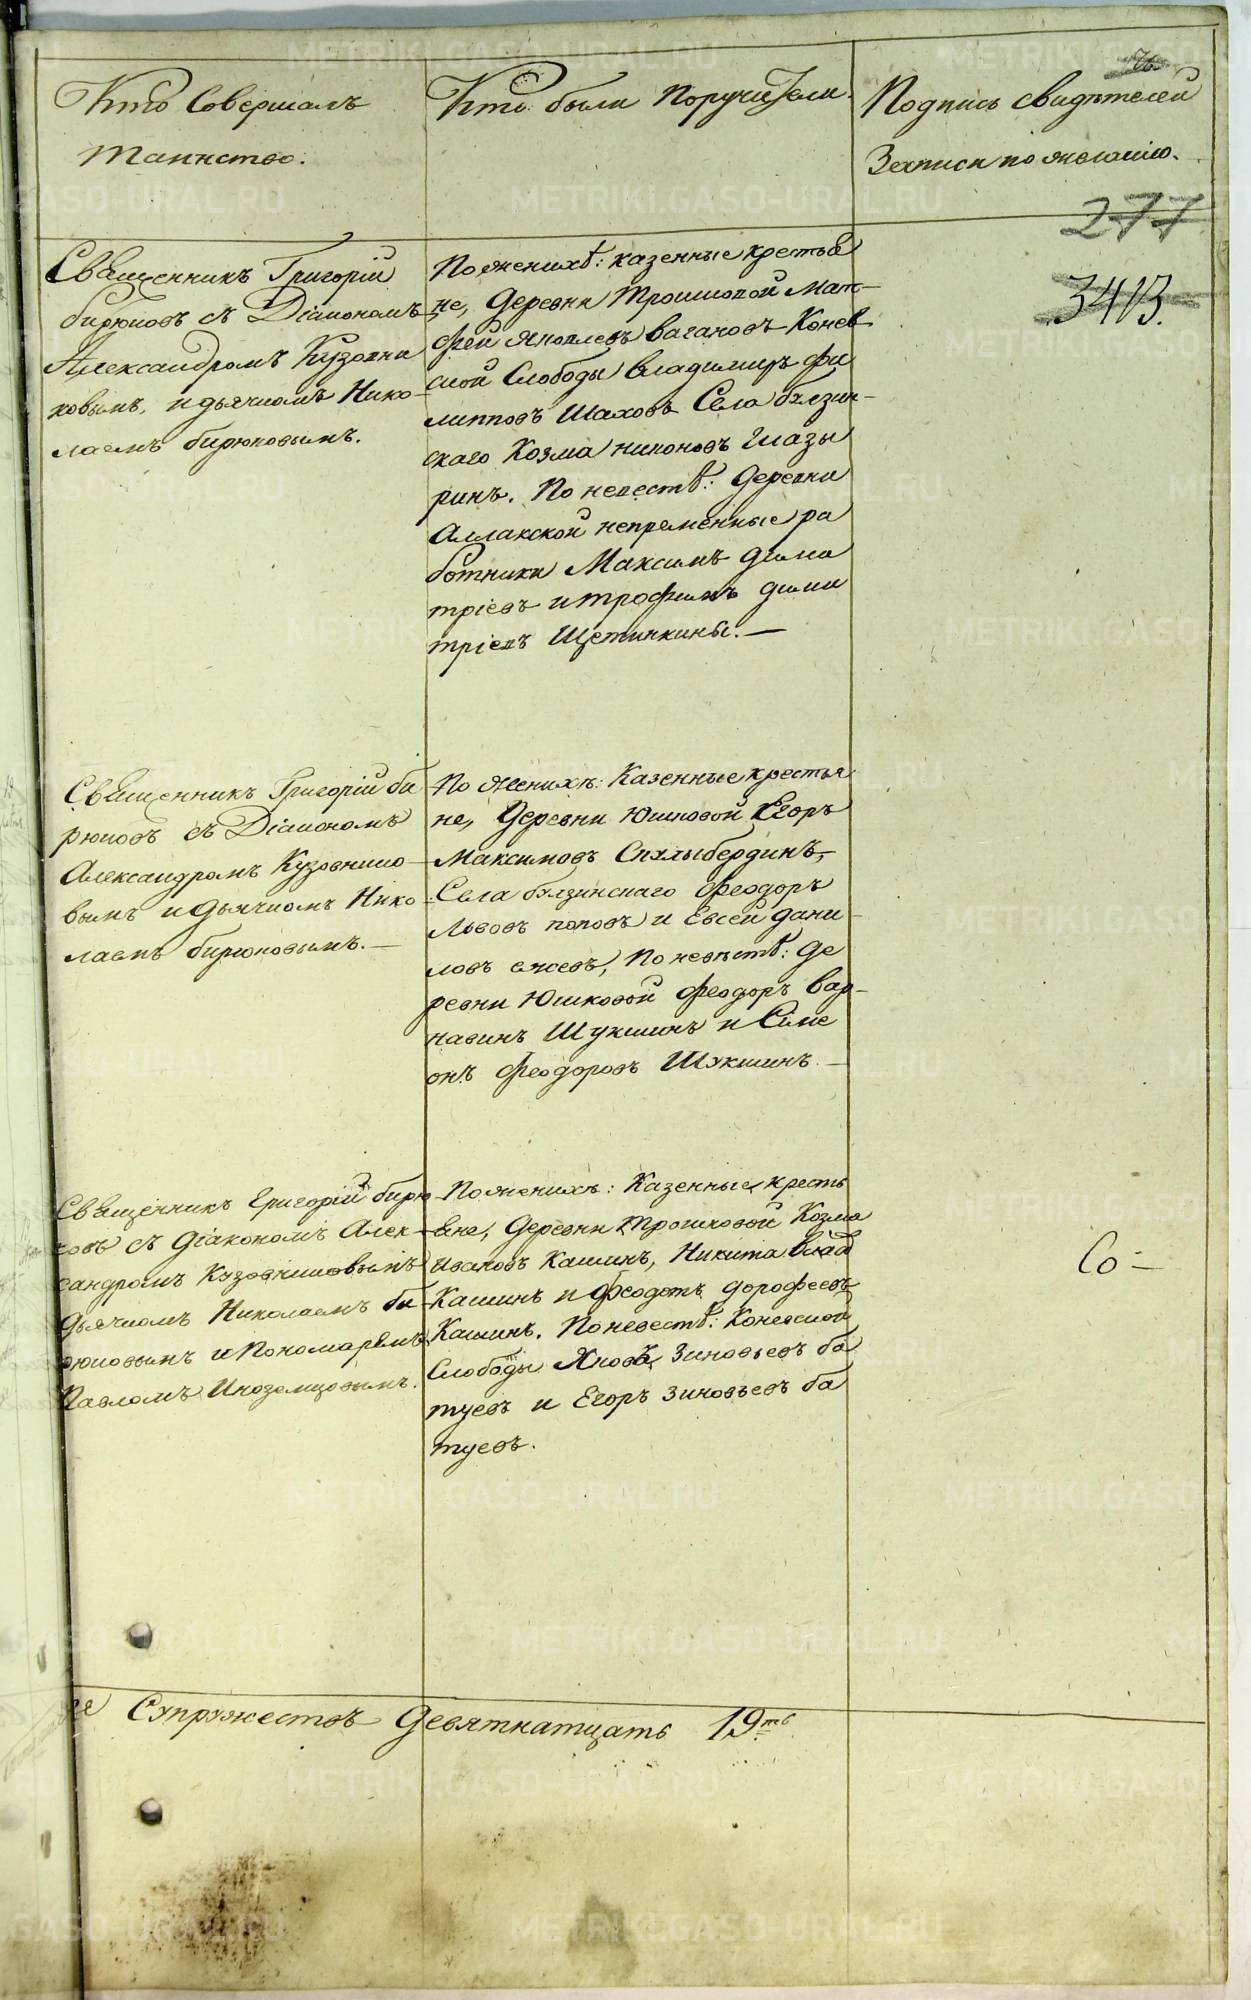 Кто Совершалъ
таинство.
Кто были Поручители.
Подпись свидѣтелей
Записи по желанію.
277
341
Священникъ Григорій
бирюковъ съ Діакономъ
Александромъ Кузовни
ковымъ, и дьячкомъ Нико-
лаемъ бирюковымъ.
По женихѣ: казенные крестья
не, Деревни Трошковой Мат-
фей Яковлевъ вагановъ Конев
ской Слободы владимиръ фи
липповъ Шаховъ Села булзин-
скаго Козма никоновъ Глазы
ринъ. По невестѣ: Деревни
Аллакской непременные ра
ботники Максимъ дими
тріевъ и трофимъ дими
тріевъ Щетинкины. —
Священникъ Григорій би
рюковъ съ Діакономъ
Александромъ Кузовнико-
вымъ и дьячкомъ Нико-
лаемъ бирюковымъ. —
По женихѣ: Казенные крестья
не, Деревни Юшковой Егоръ
Максимовъ
Села булзинскаго Феодоръ
Львовъ поповъ и Евсей дани-
ловъ По невѣстѣ: де
ревни Юшковой феодоръ вар-
навинъ Шукшинъ и Симе
онъ Феодоровъ Шукшинъ —
Священникъ Григорій бирю
ковъ съ діакономъ Алек-
сандромъ Кузовниковымъ
дьячкомъ Николаемъ би-
рюковымъ и Пономаремъ
Павломъ Иноземцовымъ.
По женихѣ: Казенные кресть
яне, Деревни Трошковой Козма
Ивановъ Кашинъ, Никита
Кашинъ и Феодотъ дорофеевъ
Кашинъ. По невестѣ: Коневской
Слободы Яковъ Зиновьевъ ба
туевъ и Егоръ Зиновьевъ ба
туевъ.
Со —
Супружествъ Девятнатцать 19ть
METRIKI.GASO-URAL.RU